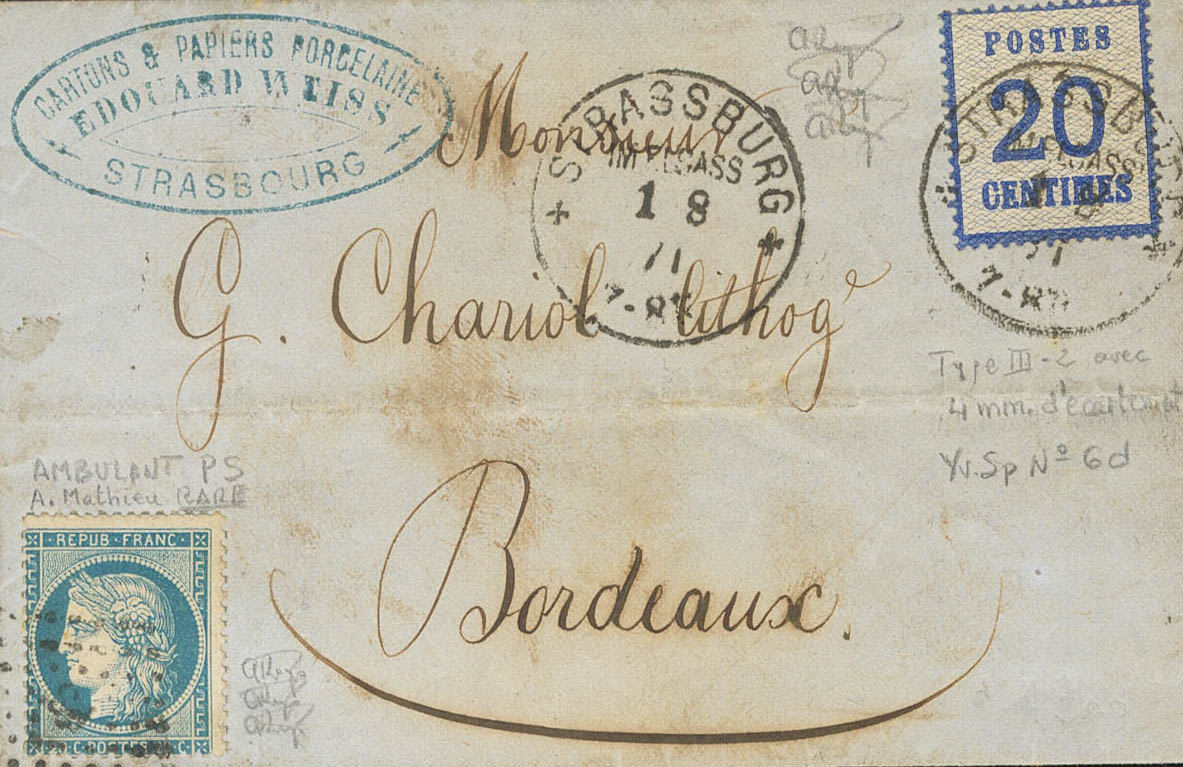 CARTONS & PAPIERS PORCELAINE
EDOUARD WEISS
STRASBOURG
POSTES
20
CENTIMES
STRASSBURG
IM ELSASS
1 8
71
STRASSBURG
IM ELSASS
1 8
71
Monsieur
G. Chariol lithog^e
Bordeaux.
Type III-2 avec
4 mm. d'écartement
Yv. Sp Nº 6d
AMBULANT PS
A. Mathieu RARE
REPUB · FRANC
POSTES